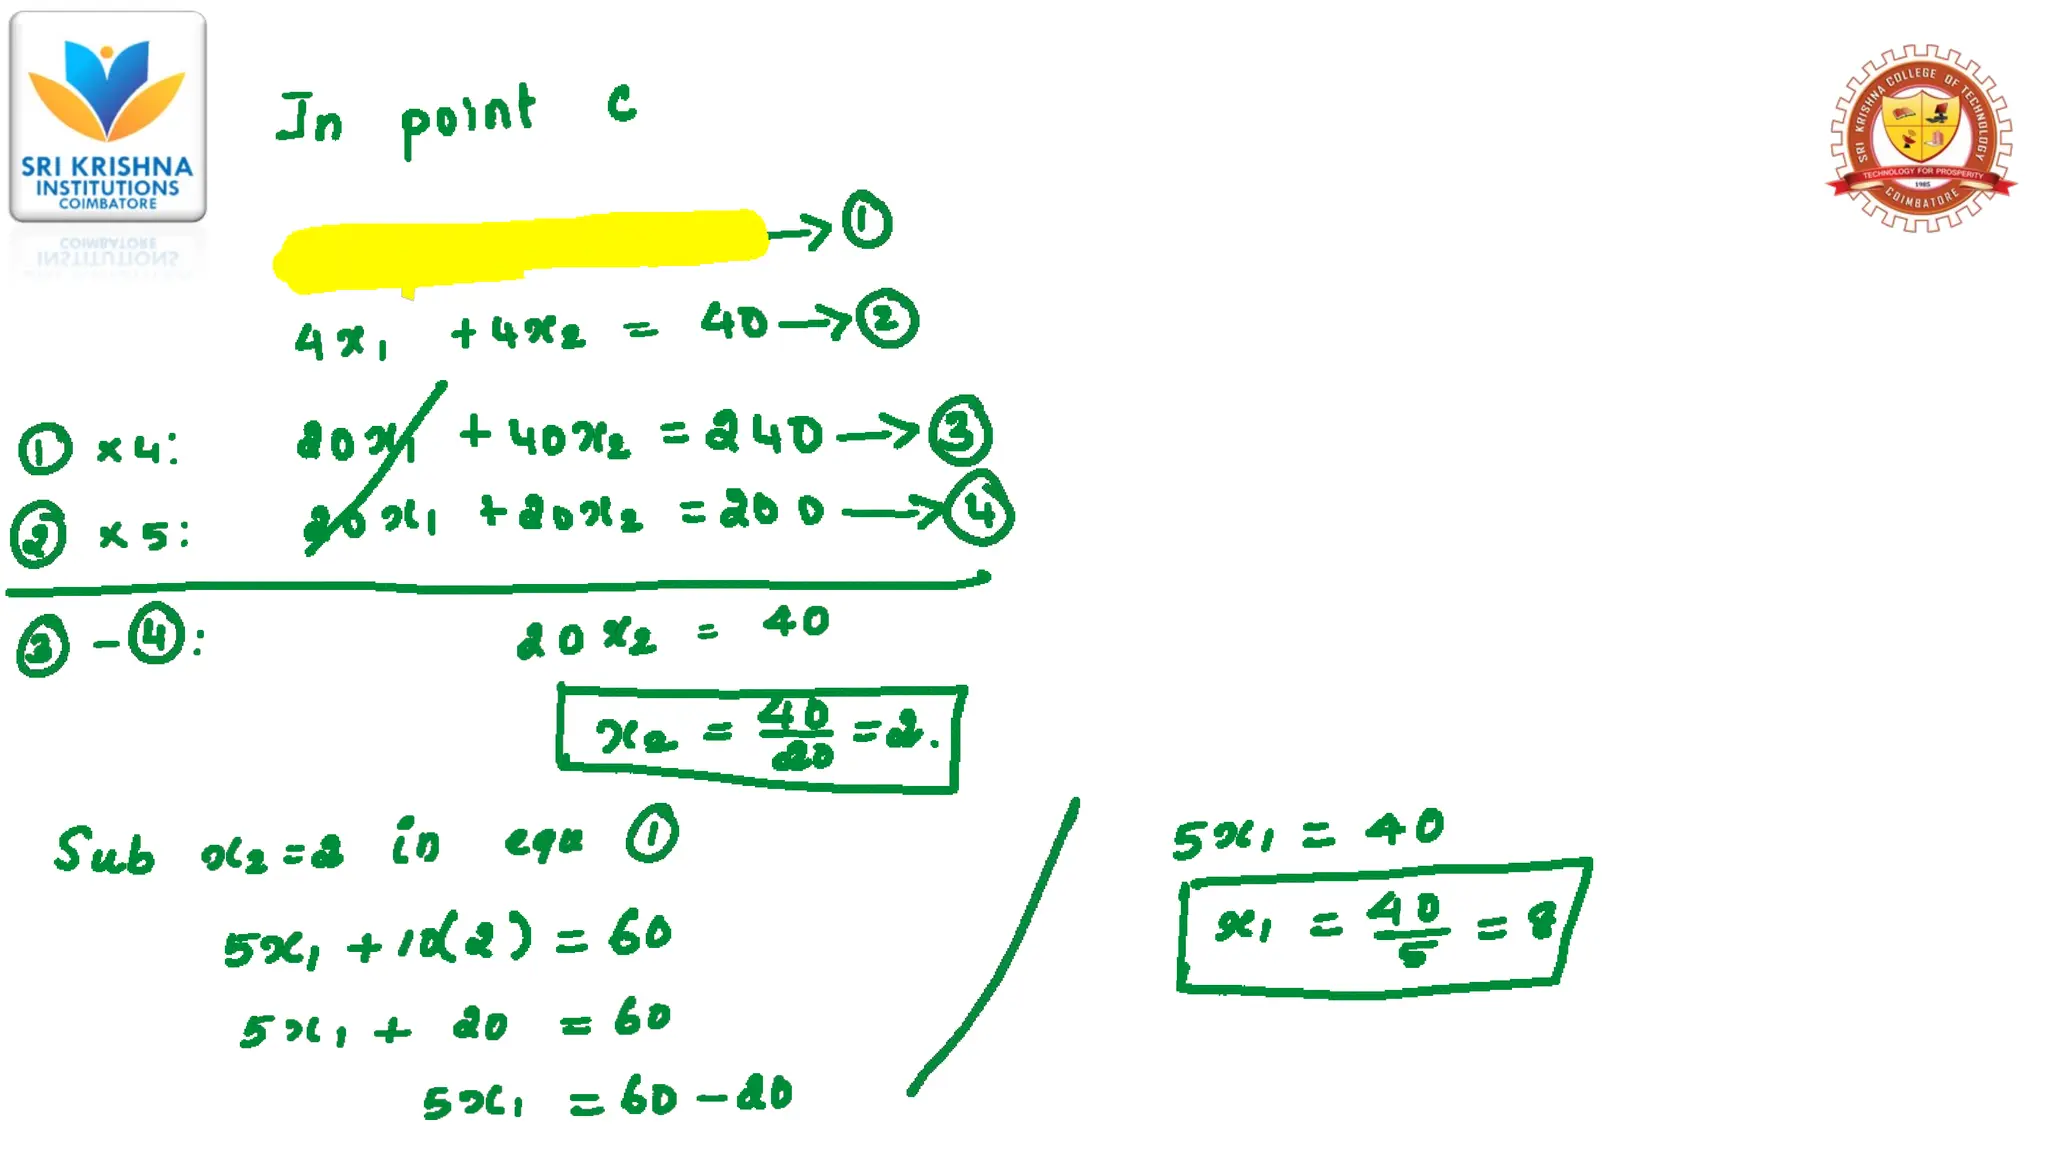 SRI KRISHNA
INSTITUTIONS
COIMBATORE
SRI KRISHNA COLLEGE OF TECHNOLOGY
TECHNOLOGY FOR PROSPERITY
1985
COIMBATORE
In point C
→ ①
4x₁ + 4x₂ = 40 → ②
① × 4: 20x₁ + 40x₂ = 240 → ③
② × 5: 20x₁ + 20x₂ = 200 → ④
③ - ④: 20x₂ = 40
x₂ = 40/20 = 2.
Sub x₂ = 2 in equ ①
5x₁ + 10(2) = 60
5x₁ + 20 = 60
5x₁ = 60 - 20
5x₁ = 40
x₁ = 40/5 = 8